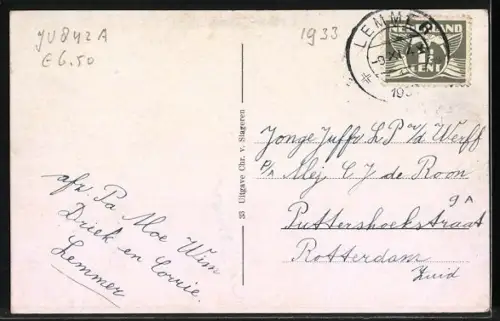 JU842A
€6.50
1933
LEMMER
NEDERLAND
1½
CENT
193
Jonge Juffr. L P v/d Werff
p/a Mej C J de Roon
9A
Puttershoekstraat
Rotterdam
Zuid
33 Uitgave Chr. v. Slageren
afz. Pa Moe Wim
Driek en Corrie.
Lemmer